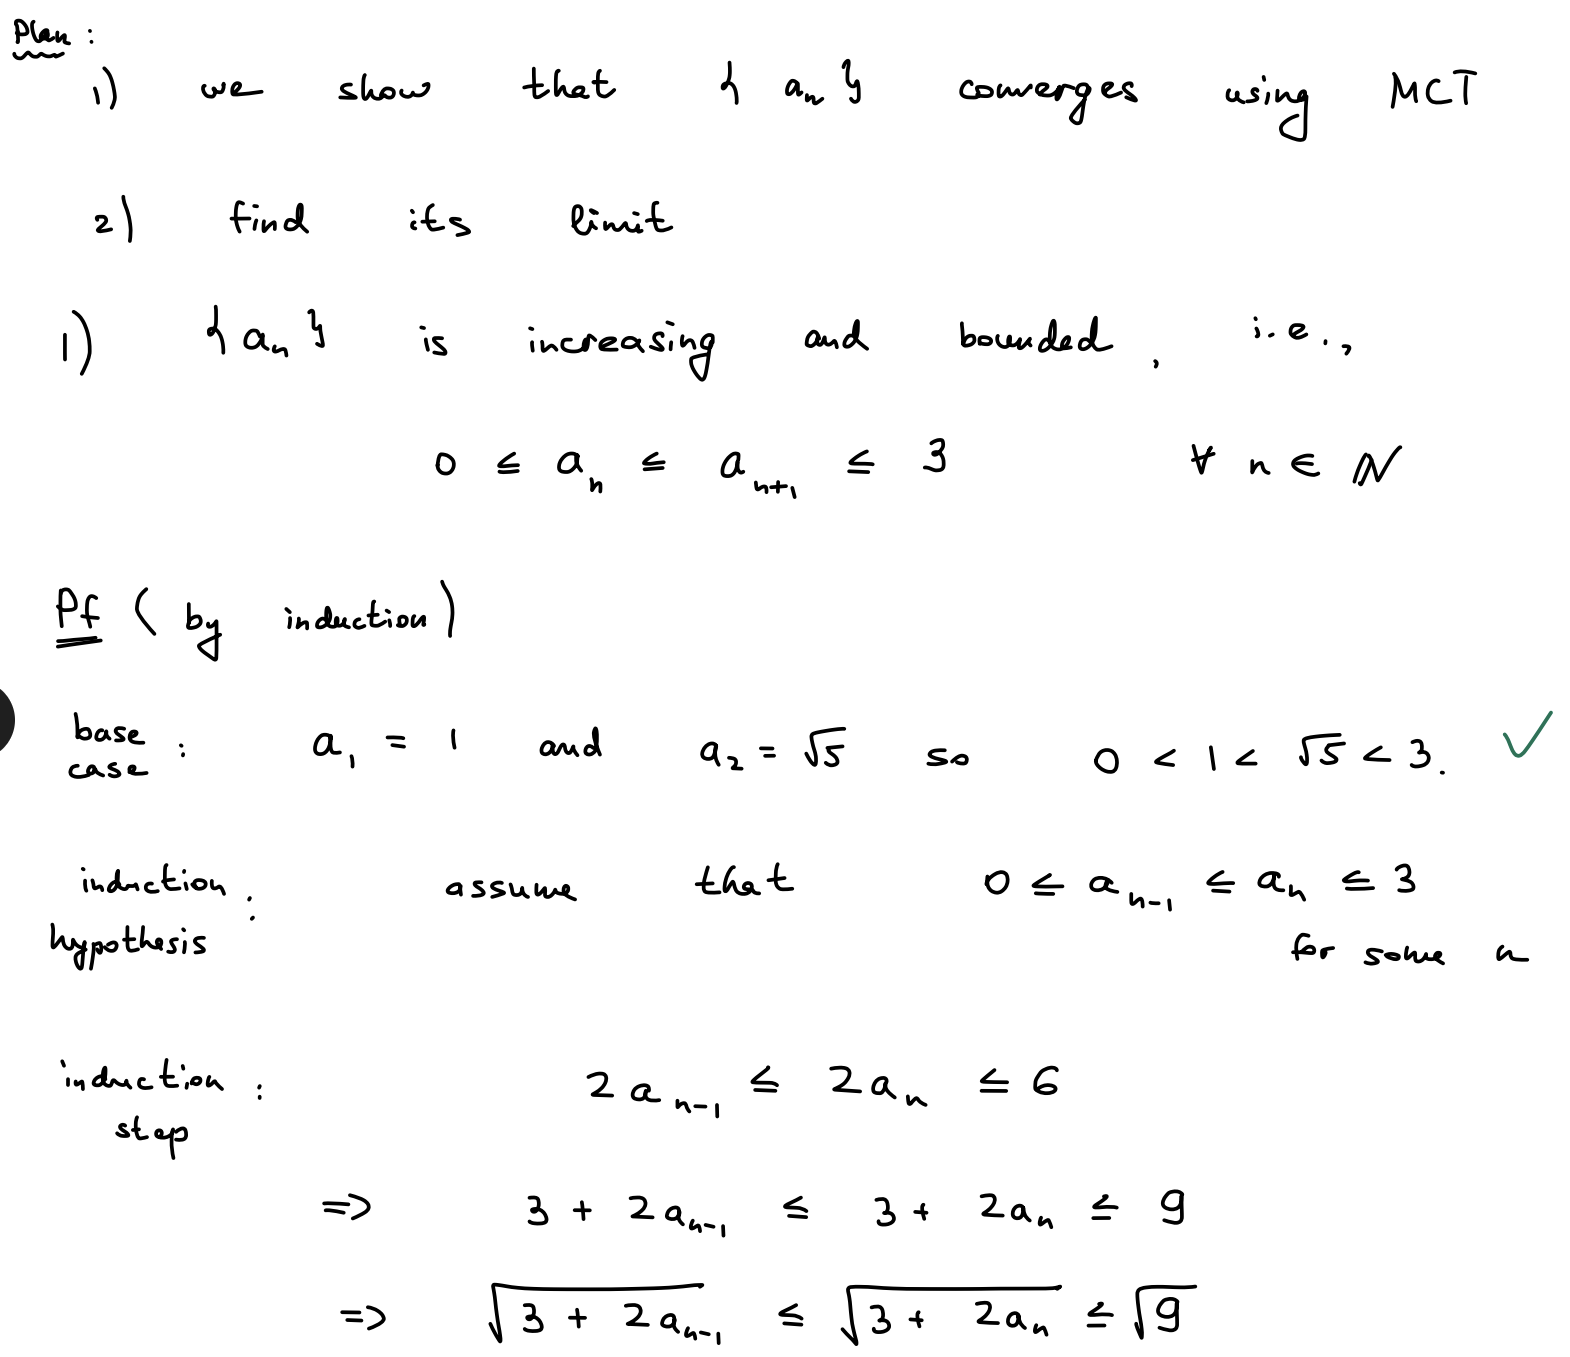 Plan :
1) we show that { an } converges using MCT
2) find its limit
1) { an } is increasing and bounded, i.e.,
0 ≤ a_n ≤ a_{n+1} ≤ 3 ∀ n ∈ ℕ
Pf (by induction)
base case : a_1 = 1 and a_2 = √5 so 0 < 1 < √5 < 3. ✓
induction hypothesis : assume that 0 ≤ a_{n-1} ≤ a_n ≤ 3
for some n
induction step : 2a_{n-1} ≤ 2a_n ≤ 6
=> 3 + 2a_{n-1} ≤ 3 + 2a_n ≤ 9
=> √(3 + 2a_{n-1}) ≤ √(3 + 2a_n) ≤ √9